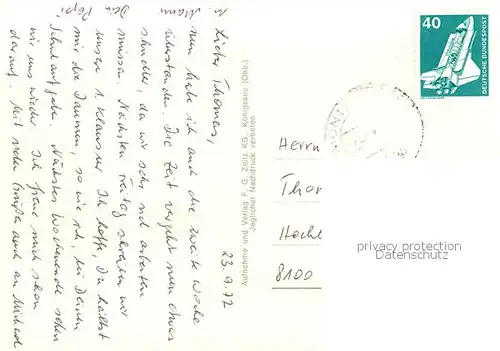 23.9.77
Lieber Thomas,
nun habe ich auch die zweite Woche
überstanden. Die Zeit vergeht nun etwas
schneller, da wir sehr viel arbeiten
müssen. Nächsten Freitag schreiben wir
unsere 1. Klausur. Ich hoffe, Du hältst
mir die Daumen, so wie ich, in Deinen
Schulaufgaben. Nächstes Wochenende sehen
wir uns wieder. Ich freue mich schon
darauf. Mit vielen Grüßen auch an Michael
u. Mami
Dein Papi
Aufnahme und Verlag F. G. Zeitz KG., Königssee (Obb.)
Jeglicher Nachdruck verboten
40
DEUTSCHE BUNDESPOST
Herrn
Thom
Hochl
8100
privacy protection
Datenschutz